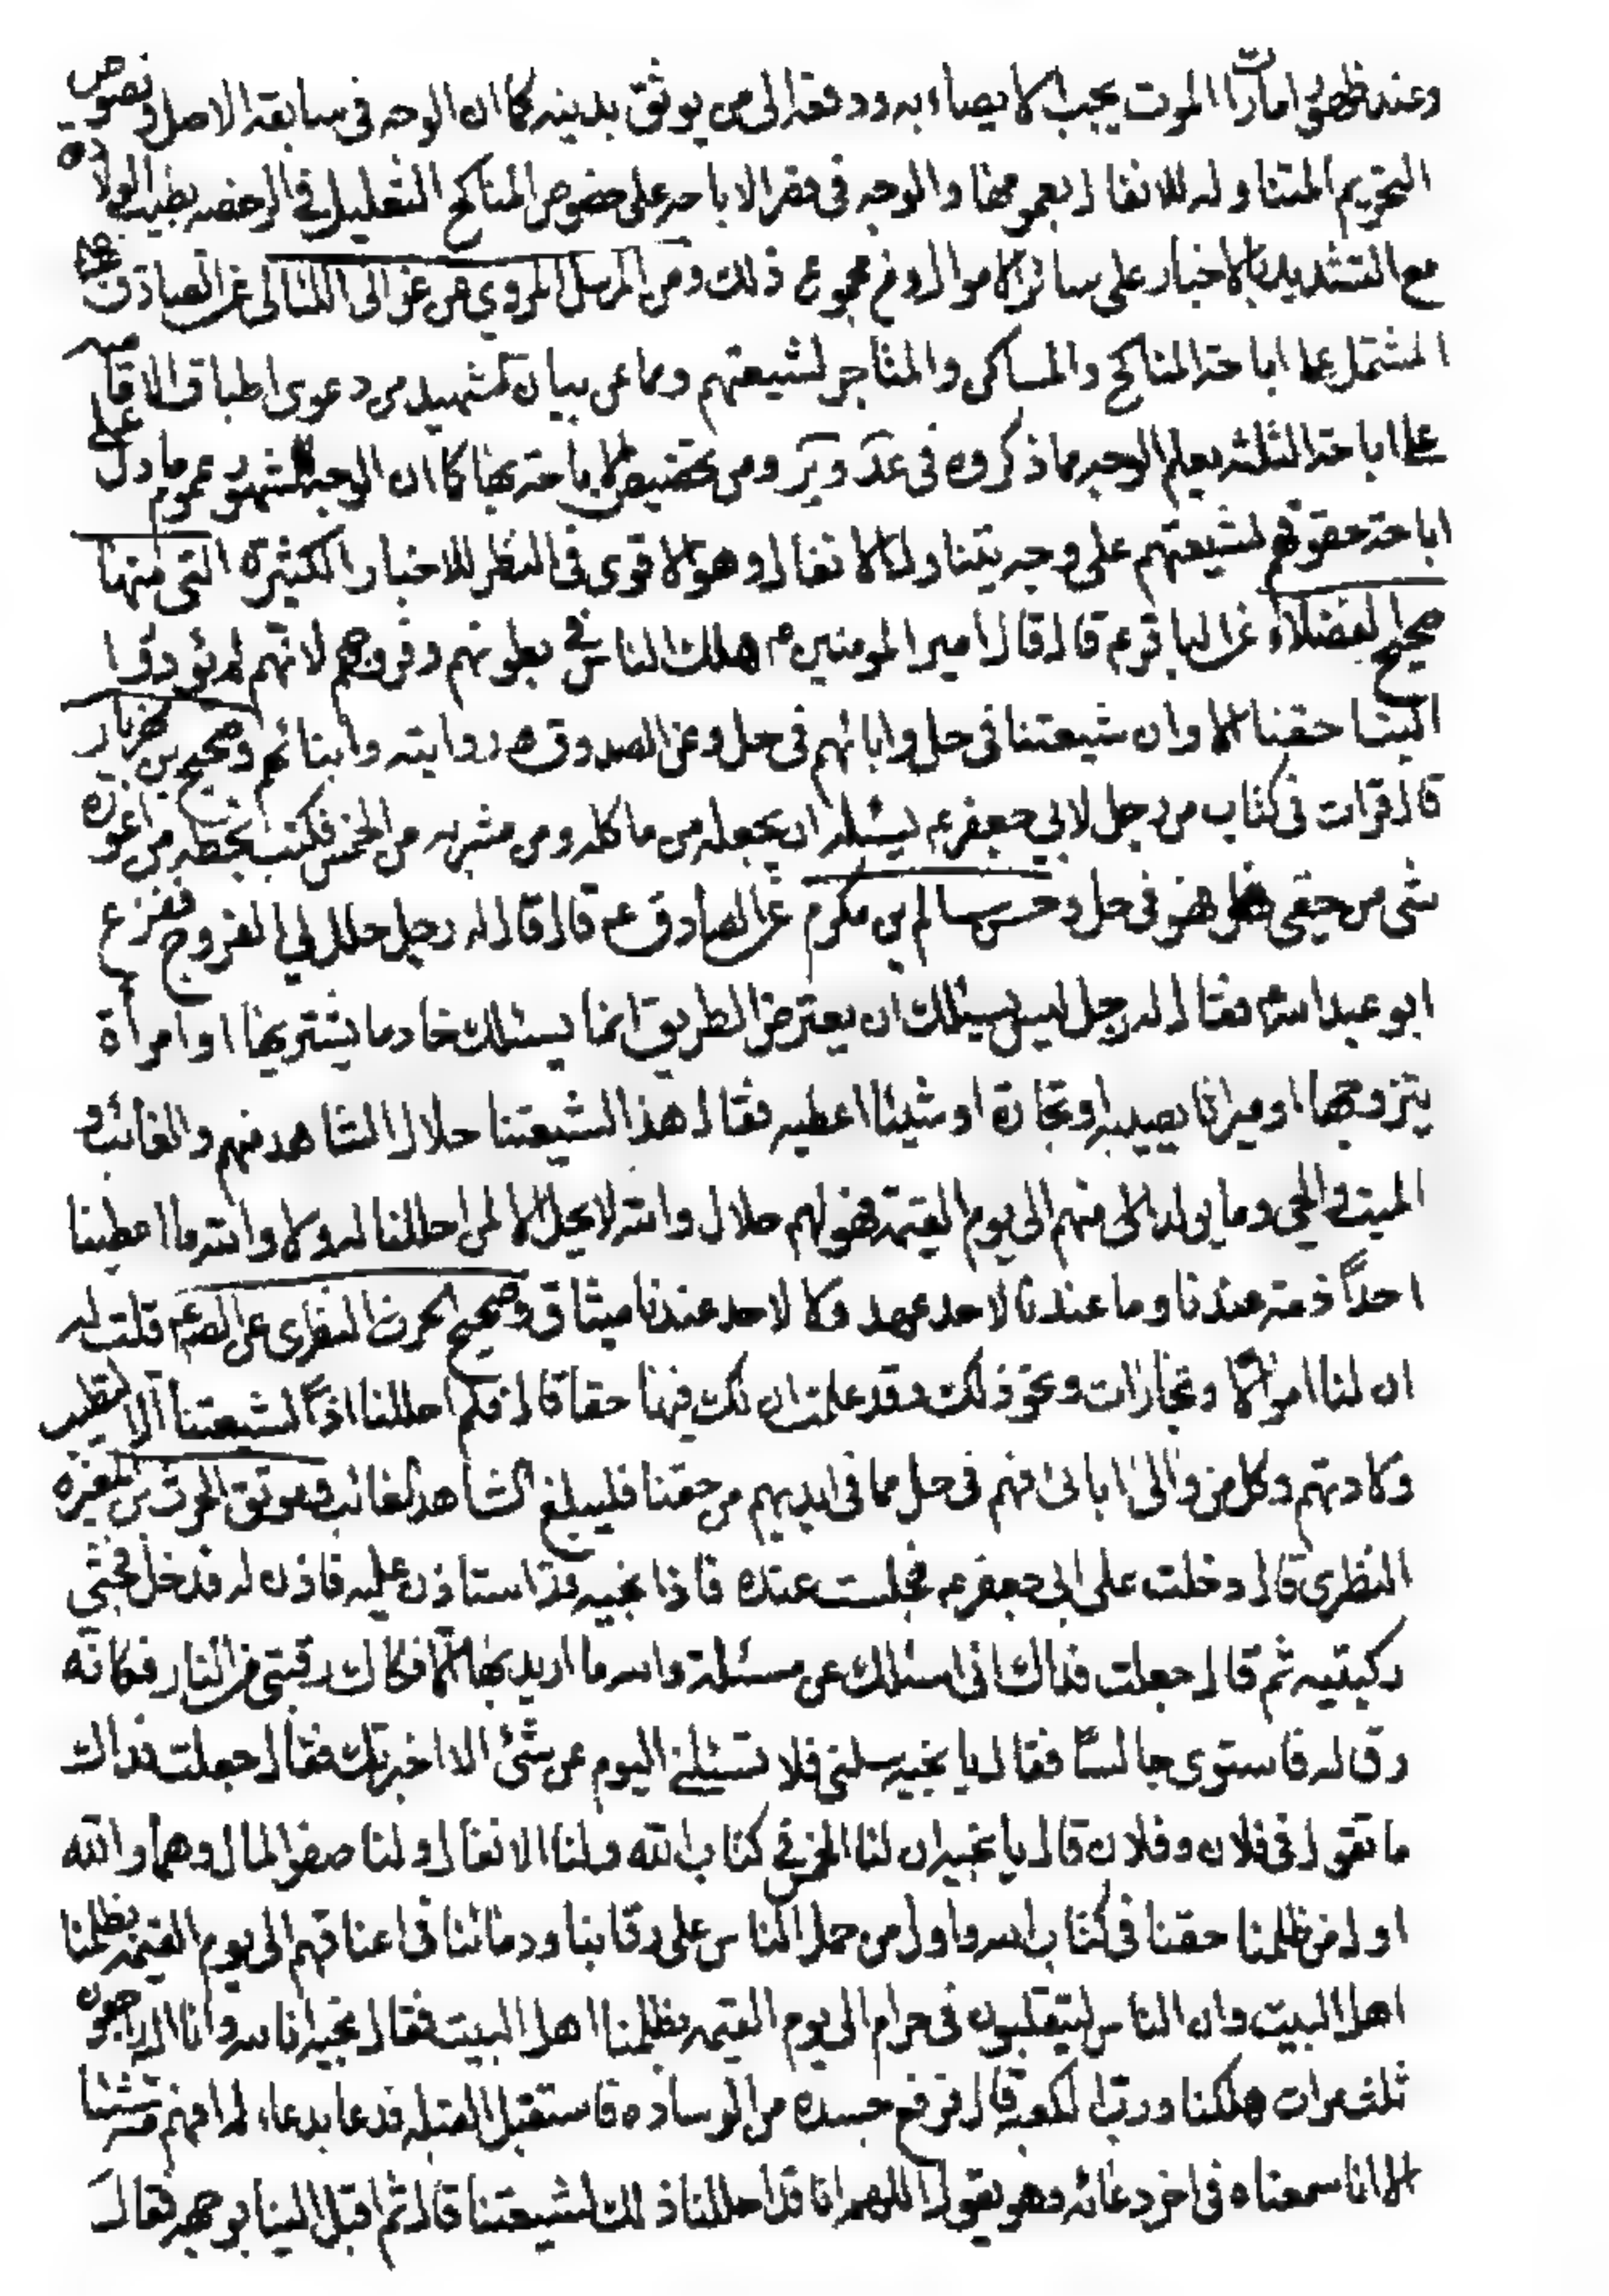 وعند ظهور امارات الموت يجب الايصاء به ودفعه الى من يوثق بدينه كما ان الوجه فى سابقه الاصل ونصوص
التحريم المتناوله للانفال بعمومها والوجه فى قصر الاباحه على خصوص المناكح التعليل فى الرخصه بطيب الولادة
مع التشديد بالاخبار على سائر الاموال ومن مجموع ذلك ومن المرسل المروي عن غوالى اللئالى عن الصادق
المشتمل على اباحة المناكح والمساكن والمتاجر لشيعتهم وما عن بيان الشهيد من دعوى اطباق الاماميه
على اباحة الثلثه يعلم الوجه ما ذكروه فى عد وير ومن تخصيص الاباحة بها كما ان الوجه المشهور عموم ما دل على
اباحة حقوقهم لشيعتهم على وجه يتناول الانفال وهو الاقوى فى النظر للاخبار الكثيرة التى منها
صحيح الفضلاء عن الباقر ع قال قال امير المومنين ع هلك الناس فى بطونهم وفروجهم لانهم لم يؤدوا
الينا حقنا الا وان شيعتنا فى حل وابائهم فى حل وعن الصدوق روايته وابنائهم وصحيح بن مهزيار
قال قرات فى كتاب من رجل لابي جعفر ع يسئله ان يجعله من ماكله ومن مشربه من الخمس فكتب بخطه من اعوزه
شى من حقى فهو فى حل وخبر سالم بن مكرم عن الصادق ع قال قال له رجل حلل لي الفروج ففزع
ابو عبد الله ع فقال له رجل ليس يسئلك ان يعترض الطريق انما يسئلك خادما يشتريها او امرأة
يتزوجها او ميراثا يصيبه او تجارة او شيئا اعطيه فقال هذا لشيعتنا حلال الشاهد منهم والغائب و
الميت والحي وما يولد الى منهم الى يوم القيمة فهو لهم حلال والله لا يحل الا لمن احللنا له ولا والله ما اعطينا
احداً ذمة عندنا وما عندنا لاحد عهد ولا لاحد عندنا ميثاق وصحيح الحرث النضرى عن الصم قلت له
ان لنا اموالا وتجارات ونحو ذلك وقد علمت ان لك فيها حقا قال فلم احللنا اذاً لشيعتنا الا لتطيب
ولادتهم وكل من والى ابائى فهم فى حل مما فى ايديهم من حقنا فليبلغ الشاهد الغائب وموثق الحرث بن المغيرة
النظرى قال دخلت على ابى جعفر ع فجلست عنده فاذا نجيه قد استاذن عليه فاذن له فدخل فجثى
ركبتيه ثم قال جعلت فداك انى اسئلك عن مسئلة والله ما اريد بها الا فكاك رقبتى من النار فكانه
رق له فاستوى جالسا فقال يا نجيه سلنى فلا تسئلنى اليوم عن شئ الا اخبرتك فقال جعلت فداك
ما تقول فى فلان وفلان قال يا نجيه ان لنا الخمس فى كتاب الله ولنا الانفال ولنا صفو المال وهما والله
اول من ظلمنا حقنا فى كتاب الله واول من حمل الناس على رقابنا ودمائنا فى اعناقهم الى يوم القيمة بظلمنا
اهل البيت وان الناس ليتقلبون فى حرام الى يوم القيمه بظلمنا اهل البيت فقال نجيه انا لله وانا اليه راجعون
ثلث مرات هلكنا ورب الكعبة قال فرفع جسده من الوساده فاستقبل القبله فدعا بدعاء لم افهم منه شيئا
الا انا سمعناه فى اخر دعائه وهو يقول اللهم انا قد احللنا ذلك لشيعتنا قال ثم اقبل الينا بوجهه فقال